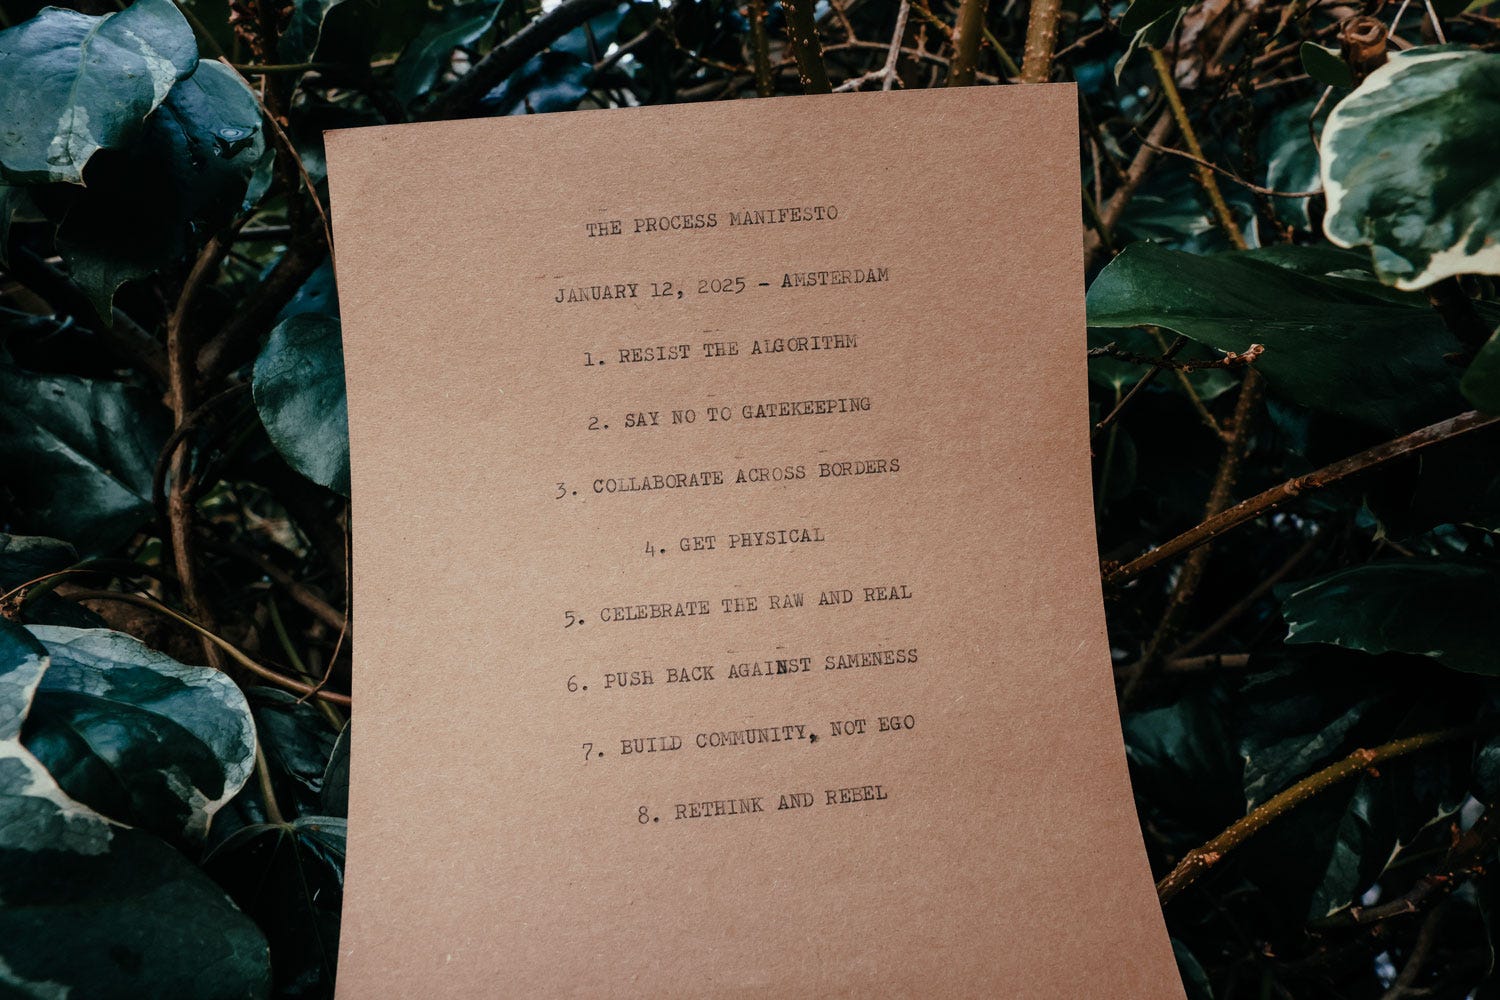 THE PROCESS MANIFESTO
JANUARY 12, 2025 - AMSTERDAM
1. RESIST THE ALGORITHM
2. SAY NO TO GATEKEEPING
3. COLLABORATE ACROSS BORDERS
4. GET PHYSICAL
5. CELEBRATE THE RAW AND REAL
6. PUSH BACK AGAINST SAMENESS
7. BUILD COMMUNITY, NOT EGO
8. RETHINK AND REBEL